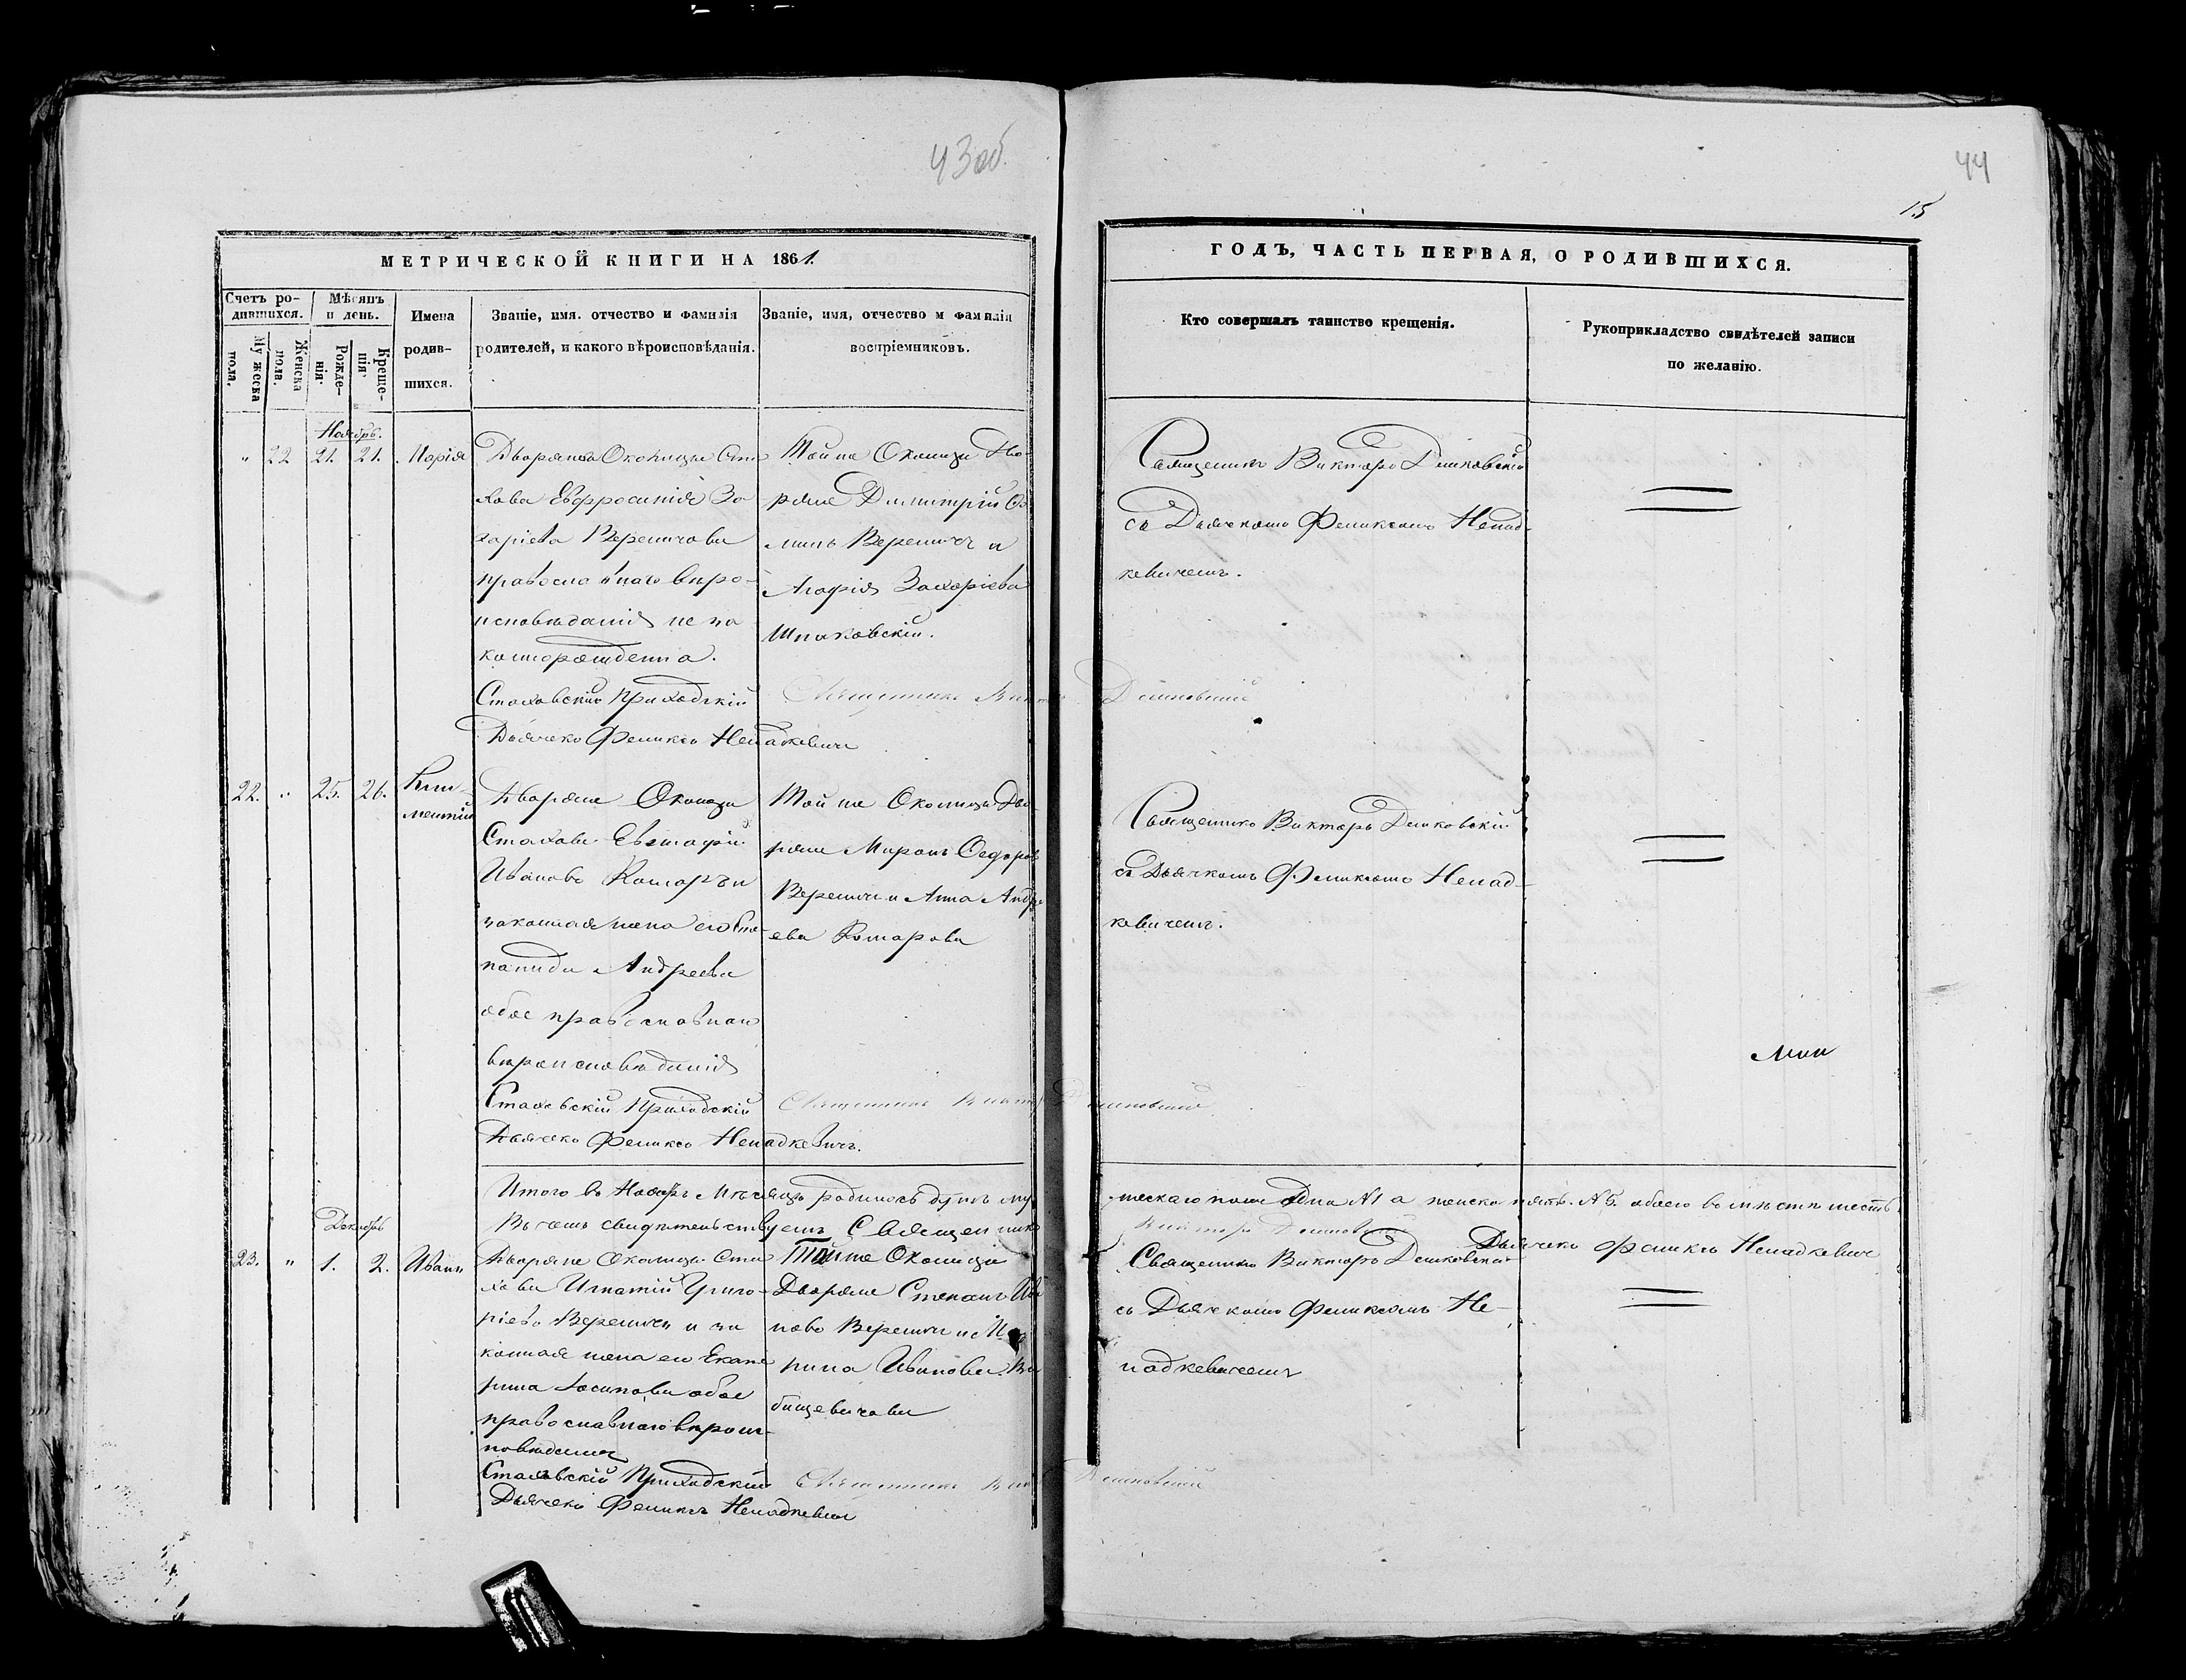 43 об.
44
15
МЕТРИЧЕСКОЙ КНИГИ НА 1861.
Счетъ ро-
дившихся.
Мѣсяцъ
и день.
Мужеска
пола.
Женска
пола.
Рожде-
нія.
Креще-
нія.
Имена
родив-
шихся.
Званіе, имя, отчество и фамилія
родителей, и какого вѣроисповѣданія.
Званіе, имя, отчество и фамилія
воспріемниковъ.
ГОДЪ, ЧАСТЬ ПЕРВАЯ, О РОДИВШИХСЯ.
Кто совершалъ таинство крещенія.
Рукоприкладство свидѣтелей записи
по желанію.
Ноябрь.
" 22 21. 21. Марія
Дворянка Околицы Ста
хова Евфросинія За
харіева Вереничова
православнаго вѣро-
исповѣданія не за
коннорожденна.
Стаховскій Приходскій
Дьячекъ Феликсъ Ненадкевичъ
Той же Околицы Дво
ряне Димитрій
Вереничъ и
Агафія Захаріева
Шпаковскій.
Священникъ Викторъ Демковскій
Священникъ Викторъ Демковскій
съ Дьячкомъ Феликсомъ Ненад-
кевичемъ.
22. " 25. 26. Кли-
ментій
Дворяне Околицы
Стахова Евстафій
Ивановъ Комаръ и
законная жена его Сте
панида Андреева
обое православнаго
вѣроисповѣданія
Стаховскій Приходскій
Дьячекъ Феликсъ Ненадкевичъ.
Той же Околицы Дво
ряне Миронъ Ѳедоровъ
Вереничъ и Анна Андре
ева Комарова
Священникъ Викторъ Демковскій
Священникъ Викторъ Демковскій
съ Дьячкомъ Феликсомъ Ненад-
кевичемъ.
Итого въ Ноябрѣ Мѣсяцѣ родилось душъ му
жескаго пола одна №1 а женска пять №5. обоего вмѣстѣ шесть
Въ чемъ свидѣтельствуетъ Священникъ
Викторъ Демковскій
Дьячекъ Феликсъ Ненадкевичъ
Декабрь
23. " 1. 2. Иванъ
Дворяне Околицы Ста
хова Игнатій Григо-
ріевъ Вереничъ и за
конная жена его Екате
рина Іосипова обое
православнаго вѣроис-
повѣданія
Стаховскій Приходскій
Дьячекъ Феликсъ Ненадкевичъ
Той же Околицы
Дворяне Степанъ Ива
новъ Вереничъ и
рина Иванова
Священникъ Демковскій
Священникъ Викторъ Демковскій
съ Дьячкомъ Феликсомъ Не-
надкевичемъ